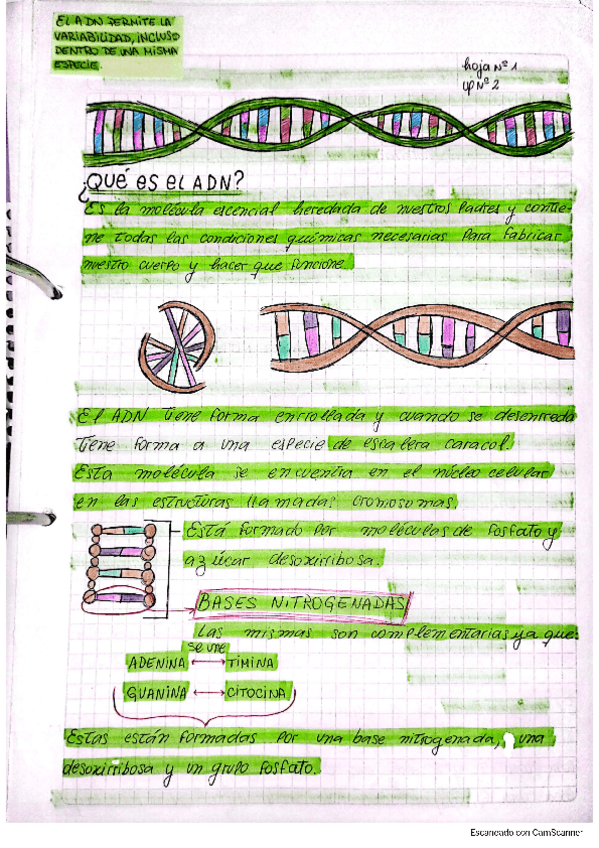 EL ADN PERMITE LA
VARIABILIDAD, INCLUSO
DENTRO DE UNA MISMA
ESPECIE.
hoja Nº 1
UP Nº 2
¿QUÉ ES EL ADN?
Es la molécula escencial heredada de nuestros Padres y contie-
ne todas las condiciones químicas necesarias Para fabricar
nuestro cuerpo y hacer que funcione.
El ADN tiene forma enrollada y cuando se desenrreda
tiene forma a una especie de escalera caracol.
Esta molécula se encuentra en el núcleo celular
en las estructuras llamadas cromosomas.
Está formado por moléculas de fosfato y
azúcar desoxirribosa.
BASES NITROGENADAS
Las mismas son complementarias ya que:
se une
ADENINA ⟷ TIMINA
GUANINA ⟷ CITOCINA
Estas están formadas por una base nitrogenada, una
desoxirribosa y un grupo fosfato.
Escaneado con CamScanner